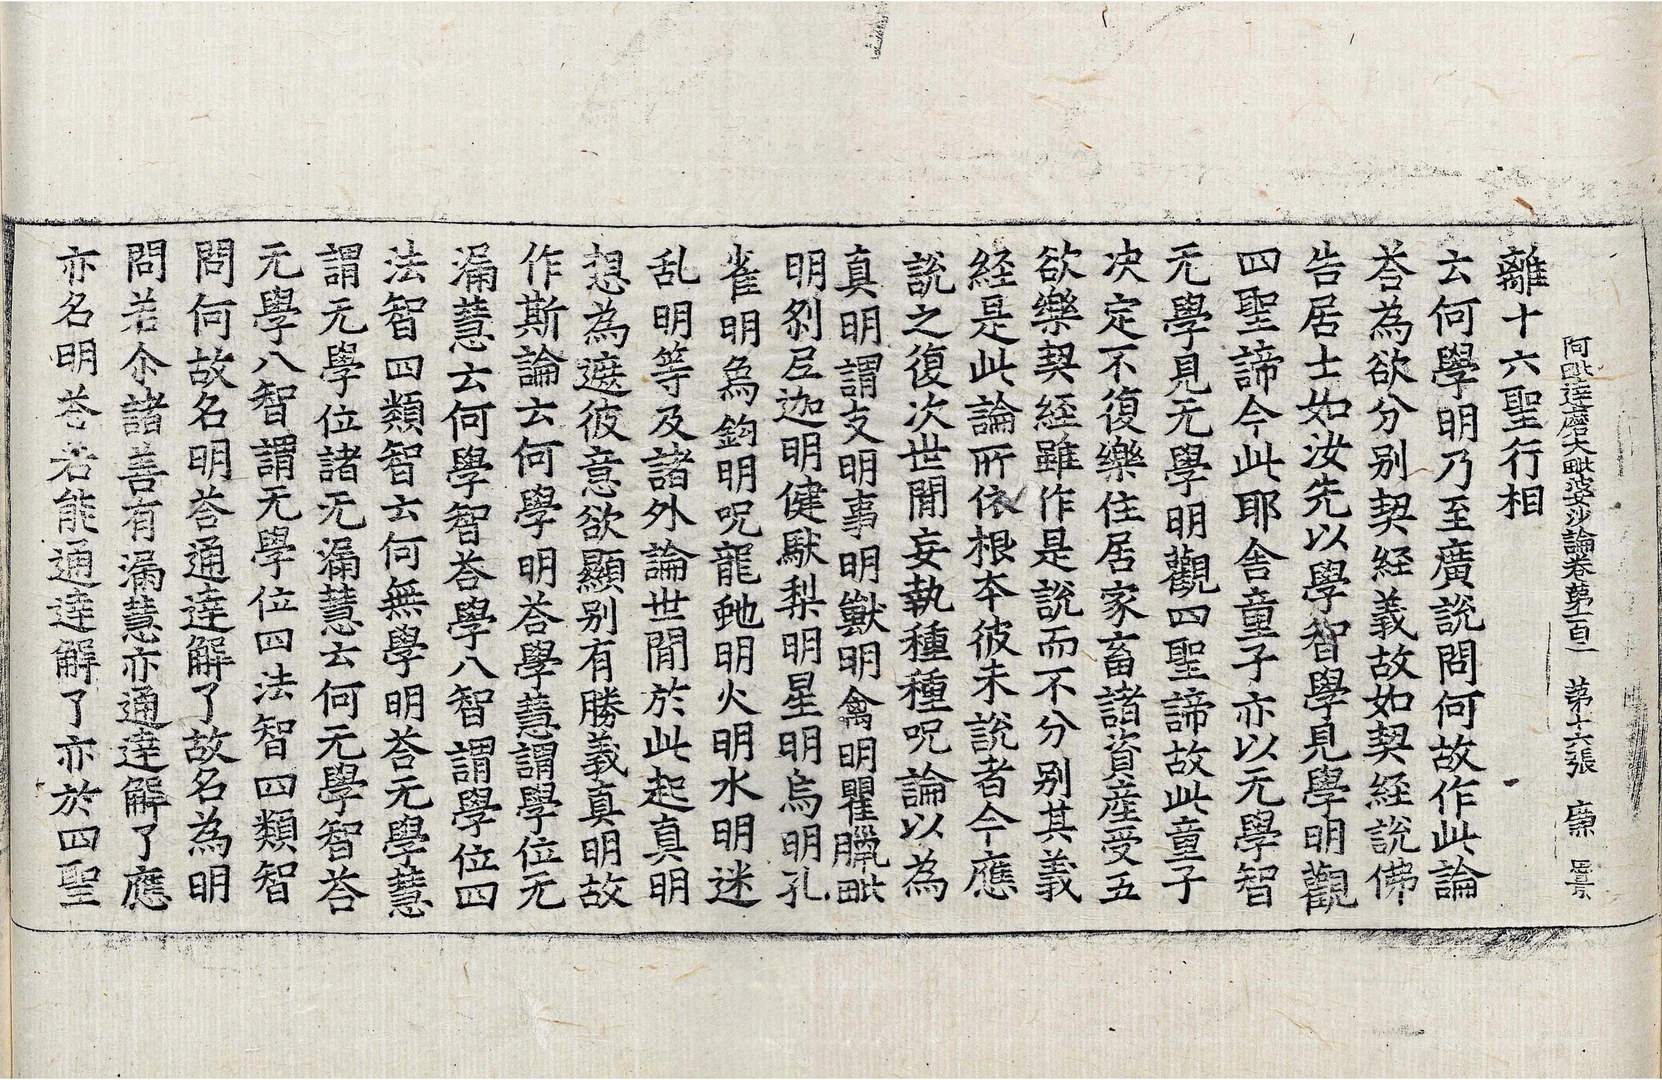 阿毗達磨大毗婆沙論卷第一百一 第十六張 廉
離十六聖行相
云何學明乃至廣說問何故作此論
荅為欲分別契経義故如契経說佛
告居士如汝先以學智學見學明觀
四聖諦今此耶舍童子亦以无學智
无學見无學明觀四聖諦故此童子
决定不復樂住居家畜諸資產受五
欲樂契経雖作是說而不分別其義
経是此論所依根本彼未說者今應
說之復次世閒妄執種種呪論以為
真明謂支明事明獸明禽明瞿臘毗
明剢𡰱迦明健馱梨明星明烏明孔
雀明烏鈎明呪龍虵明火明水明迷
乱明等及諸外論世閒於此起真明
想為遮彼意欲顯別有勝義真明故
作斯論云何學明荅學慧謂學位无
漏慧云何學智荅學八智謂學位四
法智四類智云何無學明荅无學慧
謂无學位諸无漏慧云何无學智荅
无學八智謂无學位四法智四類智
問何故名明荅通達解了故名為明
問若尒諸善有漏慧亦通達解了應
亦名明荅若能通達解了亦於四聖